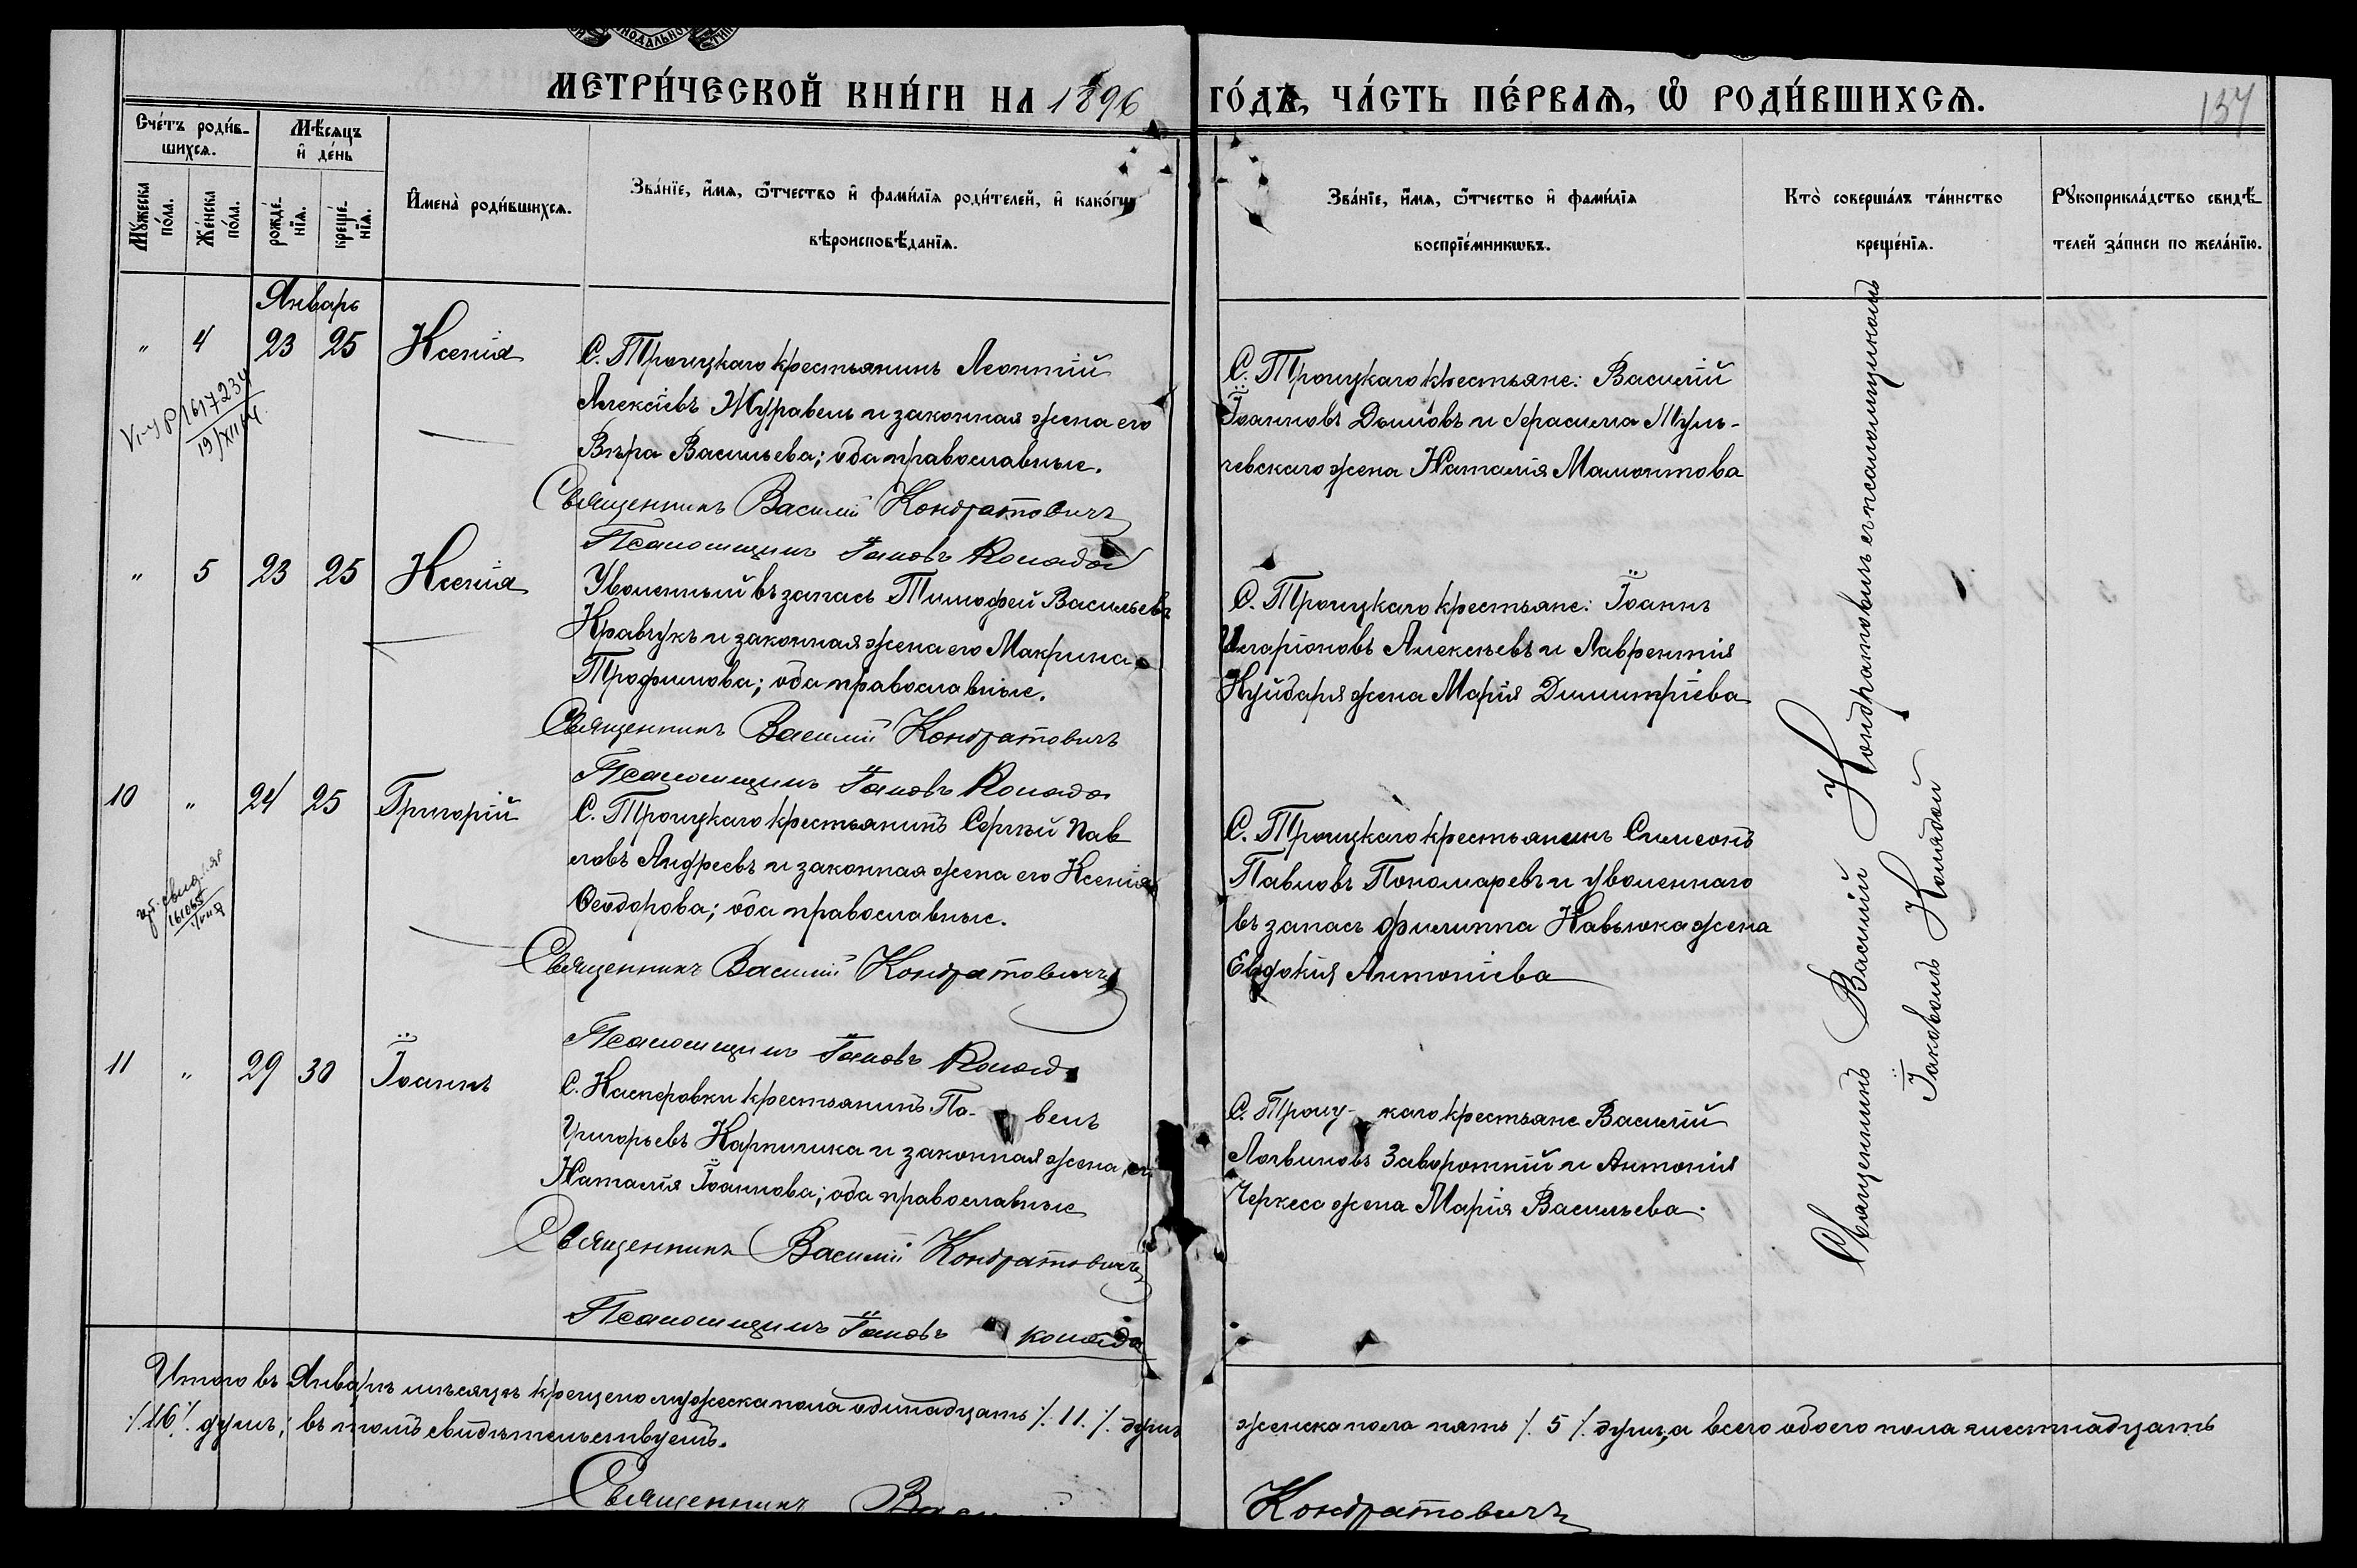 МЕТРИ́ЧЕСКОЙ КНИ́ГИ НА 1896 ГО́ДЪ, ЧА́СТЬ ПЕ́РВАѦ, Ѽ РОДИ́ВШИХСѦ.
137
Сче́тъ роди́в-
шихсѧ.
Мѣ́сѧцъ
и҆ де́нь
Мꙋ́жеска
по́ла.
Же́нска
по́ла.
рожде́-
нїѧ.
креще́-
нїѧ.
И҆мена̀ роди́вшихсѧ.
Зва́нїе, и҆́мѧ, ѻ҆́тчество и҆ фами́лїѧ роди́телей, и҆ како́гѡ
вѣроисповѣ́данїѧ.
Зва́нїе, и҆́мѧ, ѻ҆́тчество и҆ фами́лїѧ
воспрїе́мникѡвъ.
Кто̀ соверша́лъ та́инство
креще́нїѧ.
Рꙋкоприкла́дство свидѣ́-
телей за́писи по жела́нїю.
Январь
" 4 23 25 Ксенія
С. Троицкаго крестьянинъ Леонтій
Алексіевъ Журавель и законная жена его
Вѣра Васильева; оба православные.
Священникъ Василій Кондратовичъ
Псаломщикъ Іаковъ Коляда
С. Троицкаго крестьяне: Василій
Іоанновъ Дымовъ и Герасима Муль-
чевскаго жена Наталія Мамонтова
19/XII
" 5 23 25 Ксенія
Уволенный въ запасъ Тимофей Васильевъ
Кравчукъ и законная жена его Макрина
Трофимова; оба православные.
Священникъ Василій Кондратовичъ
Псаломщикъ Іаковъ Коляда
С. Троицкаго крестьяне: Іоаннъ
Иларіоновъ Алексѣевъ и Лаврентія
Куйдаря жена Марія Димитріева
10 " 24 25 Григорій
С. Троицкаго крестьянинъ Сергѣй Пав
ловъ Андреевъ и законная жена его Ксенія
Ѳеодорова; оба православные.
Священникъ Василій Кондратовичъ
Псаломщикъ Іаковъ Коляда
С. Троицкаго крестьянинъ Симеонъ
Павловъ Пономаревъ и уволеннаго
въ запасъ Филиппа Навьюка жена
Евдокія Антоніева
11 " 29 30 Іоаннъ
С. Касперовки крестьянинъ Па- велъ
Григорьевъ Карпилика и законная жена его
Наталія Іоаннова; оба православные
Священникъ Василій Кондратовичъ
Псаломщикъ Іаковъ Коляда
С. Троиц- каго крестьяне Василій
Логвиновъ Заворотній и Антонія
Черкеса жена Марія Васильева.
Священникъ Василій Кондратовичъ съ псаломщикомъ
Іаковомъ Колядой
Итого въ Январѣ мѣсяцѣ крещено мужеска пола одинадцать /. 11. /. душъ женска пола пять /. 5 /. душъ, а всего обоего пола шестнадцать
/. 16 /. душъ; въ томъ свидѣтельствуетъ.
Священникъ Василій Кондратовичъ